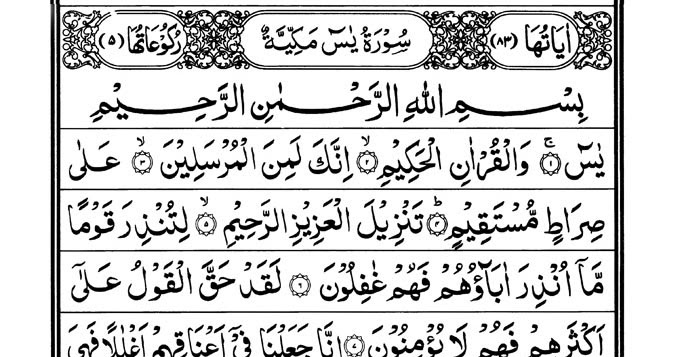 اٰيَاتُهَا (۸۳) سُوْرَةُ يٰسٓ مَكِّيَّةٌ رُكُوْعَاتُهَا (۵)
بِسْمِ اللّٰهِ الرَّحْمٰنِ الرَّحِيْمِ
يٰسٓ ۚ ۝۱ وَالْقُرْاٰنِ الْحَكِيْمِ ۙ ۝۲ اِنَّكَ لَمِنَ الْمُرْسَلِيْنَ ۙ ۝۳ عَلٰى
صِرَاطٍ مُّسْتَقِيْمٍ ؕ ۝۴ تَنْزِيْلَ الْعَزِيْزِ الرَّحِيْمِ ۙ ۝۵ لِتُنْذِرَ قَوْمًا
مَّاۤ اُنْذِرَ اٰبَآؤُهُمْ فَهُمْ غٰفِلُوْنَ ۝۶ لَقَدْ حَقَّ الْقَوْلُ عَلٰٓى
اَكْثَرِهِمْ فَهُمْ لَا يُؤْمِنُوْنَ ۝۷ اِنَّا جَعَلْنَا فِيْۤ اَعْنَاقِهِمْ اَغْلٰلًا فَهِيَ